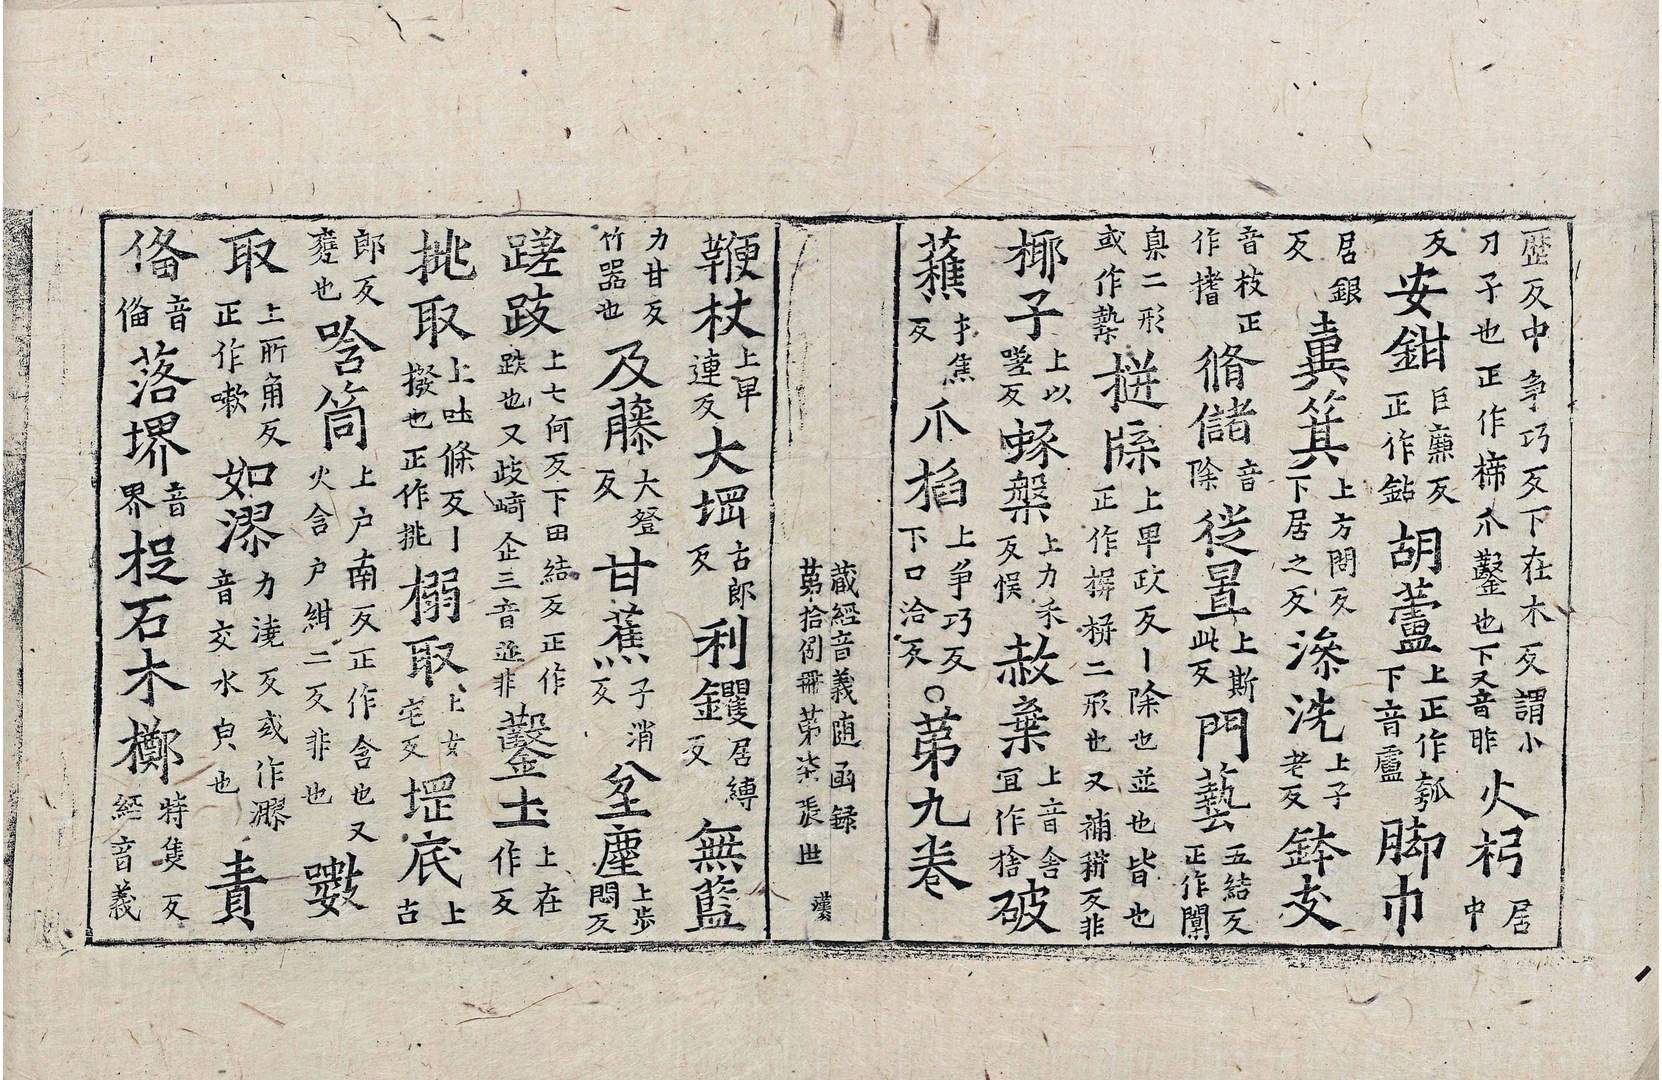 歷反中爭巧反下在木反謂小刀子也正作㭰爪鑿也下又音昨火杩居中
反安鉗巨廉反正作鉆胡蘆上正作瓠下音盧脚巾
居銀反糞箕上方問反下居之反滲洗上子老反鉢支
音枝正作揩脩儲音除從置上斯此反門藝五結反正作闑
臬二形或作槷㨒㸠上卑政反丨除也並也皆也正作摒栟二形也又補耕反非
椰子上以嗟反蜾槃上力禾反悮赦棄上音舍宜作捨破
蕉才焦反爪掐上爭巧反下口洽反○第九卷
藏經音義随函録第拾伺冊第柒張世
鞭杖上卑連反大堽古郎反利钁居縛反無藍
力甘反竹器也及藤大登反甘蕉子消反坌塵上步悶反
蹉跂上七何反下田結反正作跌也又歧崎企三音並非鑿土上在作反
挑取上吐條反丨撥也正作挑搦取上女宅反堽底上古
郎反甕也唅筒上户南反正作含也又火含户紺二反非也嗽
取上所角反正作嗽如漻力澆反或作漻音交水皃也責
俻音俻落堺音界捉石木擲特隻反經音義